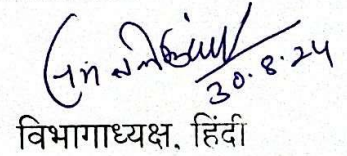 30.8.24
विभागाध्यक्ष, हिंदी